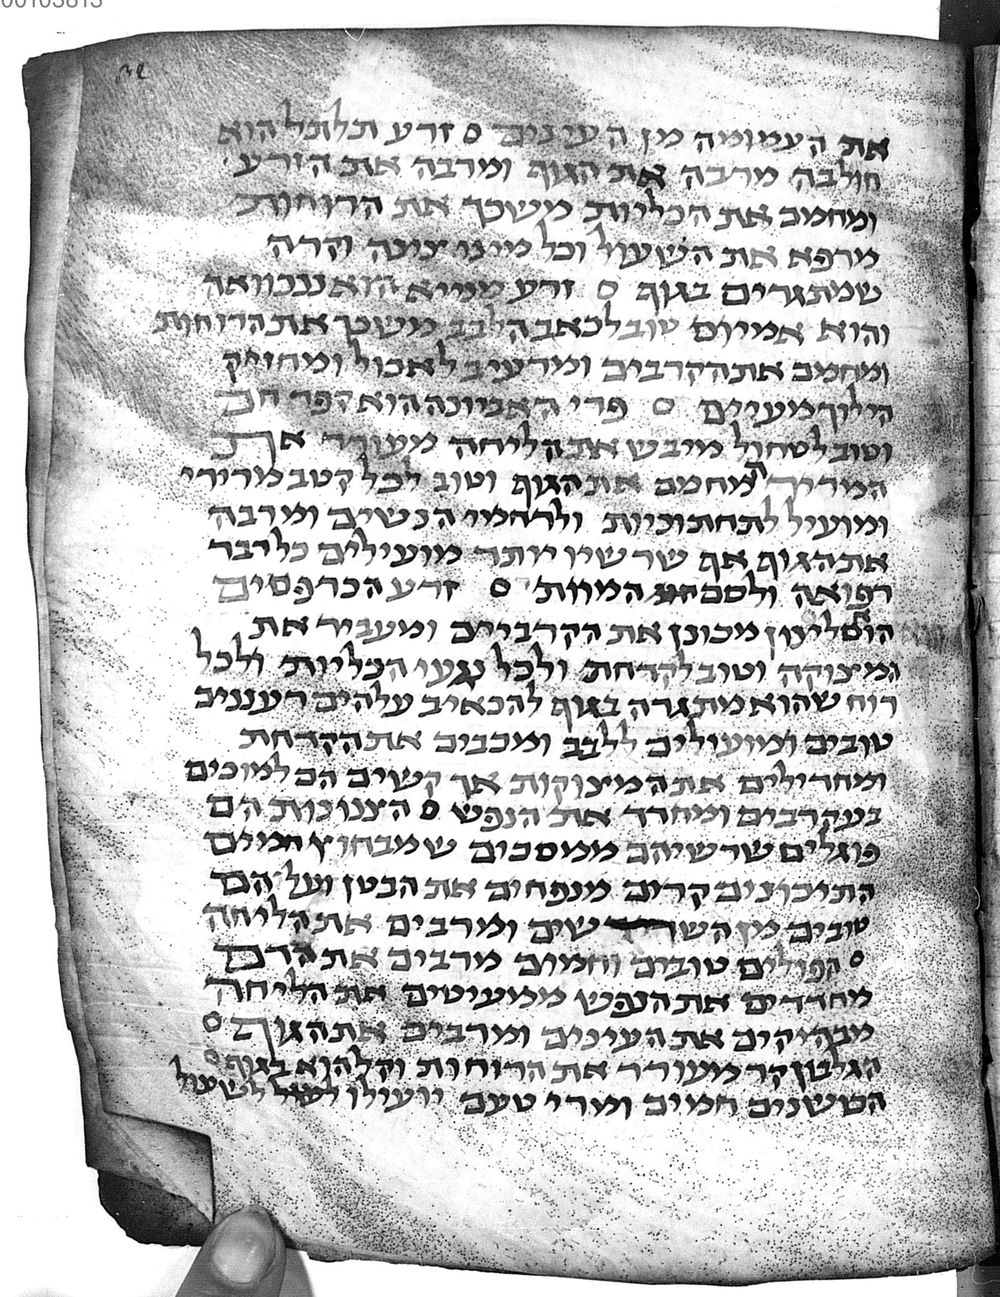 00103813
את העמומה מן העינים ο זרע תלתל הוא
חולבה מרבה את הגוף ומרבה את הזרע
ומחמם את הכליות משכך את הרוחות
מרפא את השעול וכל מיני צינה וקרה
שמתגרים בגוף ο זרע מנייא הוא
והוא אמיוס טוב לכאב הלבב משכך את הרוחות
ומחמם את הקרבים ומרעיב לאכול ומחזיק
הילוך מעיים ο פרי האביונה הוא קפר חם
וטוב לטחול מייבש את הליחה מעורר אף
המרירה מחמם את הגוף וטוב לכל קטב מרירי
ומועיל לתחתוניות ולרחמי הנשים ומרבה
את הגוף אף שרשיו יותר מועילים כל דבר
רפואה ולסם המות ο זרע הכרפסים
מכונן את הקרביים ומעביר את
המיצוקה וטוב לקדחת ולכל נגעי הכליות ולכל
רוח שהוא מתגרה בגוף להכאיב עלהים רעננים
טובים ומועילים ללבב ומכבים את הקדחת
ומחדילים את המיצוקות אך קשים הם למוכים
בעקרבים ומחדד את הנפש ο הצנונות הם
פוגלים שרשיהם ממסכים שמבחוץ חמים
התיכונים קרים מנפחים את הבטן ועליהם
טובים מן השרשים ומרבים את הליחה
ο הפולים טובים וחמים מרבים את הדם
מחדדים את הנפש ממעיטים את הליחה
מבהיקים את העינים ומרבים את הגוף ο
הגלבון קר מעורר את הרוחות וקל הוא בגוף ο
חמים ומרי טעם יועילו לעול לשעול